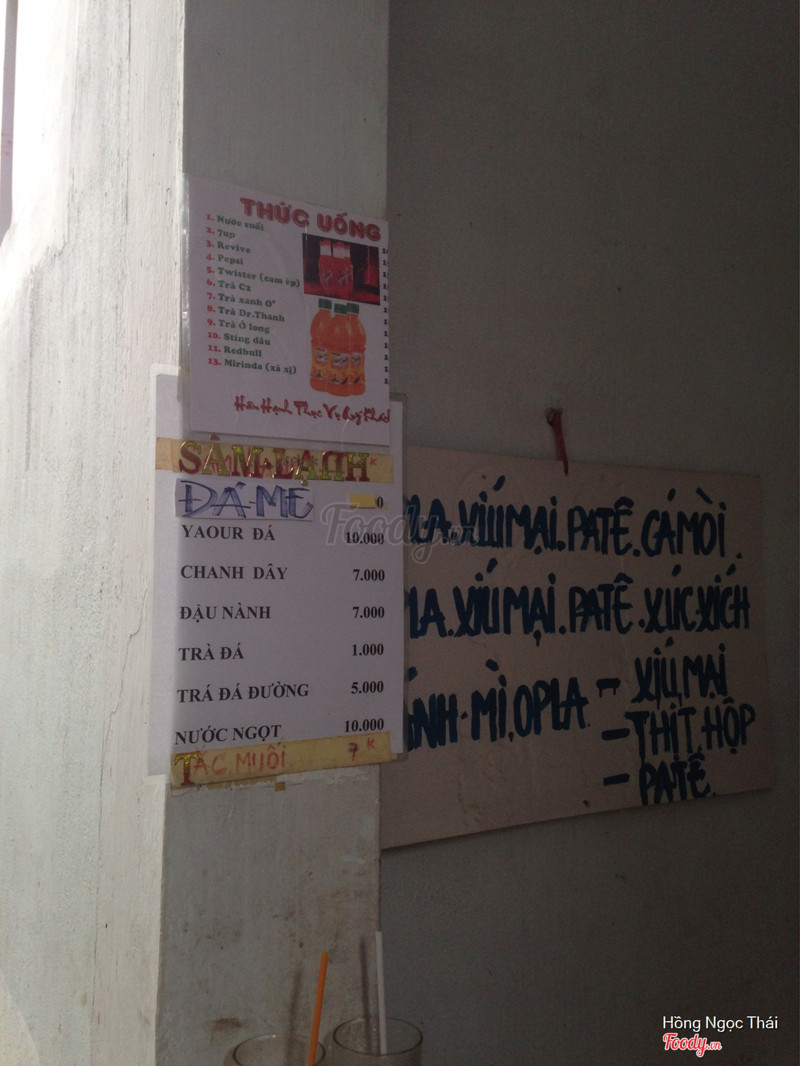 THỨC UỐNG
1. Nước suối
2. 7up
3. Revive
4. Pepsi
5. Twister (cam ép)
6. Trà C2
7. Trà xanh 0°
8. Trà Dr.Thanh
9. Trà Ô long
10. Sting dâu
11. Redbull
13. Mirinda (xá xị)
Hân Hạnh Phục Vụ Quý Khách
SÂM LẠNH K
ĐÁ ME 0
YAOUR ĐÁ 10.000
CHANH DÂY 7.000
ĐẬU NÀNH 7.000
TRÀ ĐÁ 1.000
TRÁ ĐÁ ĐƯỜNG 5.000
NƯỚC NGỌT 10.000
TẮC MUỐI 7K
PLA.XÍU MẠI.PATÊ.CÁ MÒI
LA.XÍU MẠI.PATÊ.XÚC XÍCH
ÁNH MÌ OPLA - XÍU MẠI
- THỊT HỘP
- PATÊ
Foody.vn
Hồng Ngọc Thái
Foody.vn